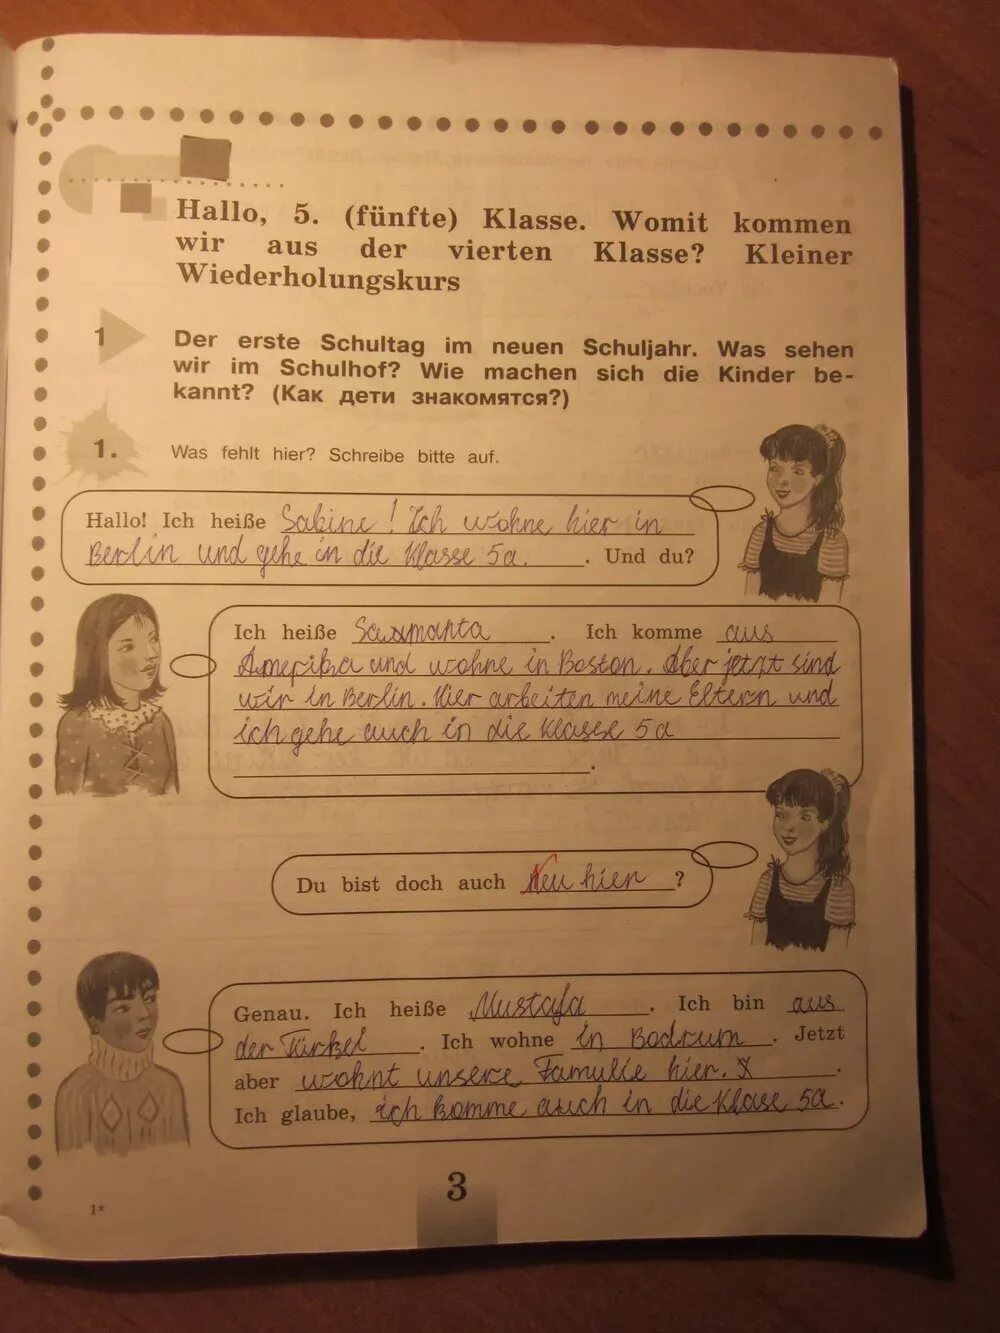 Hallo, 5. (fünfte) Klasse. Womit kommen
wir aus der vierten Klasse? Kleiner
Wiederholungskurs
1 Der erste Schultag im neuen Schuljahr. Was sehen
wir im Schulhof? Wie machen sich die Kinder be-
kannt? (Как дети знакомятся?)
1. Was fehlt hier? Schreibe bitte auf.
Hallo! Ich heiße Sabine! Ich wohne hier in
Berlin und gehe in die Klasse 5a. . Und du?
Ich heiße . Ich komme aus
Amerika und wohne in Boston. Aber jetzt sind
wir in Berlin. Hier arbeiten meine Eltern und
ich gehe auch in die Klasse 5a
.
Du bist doch auch Neu hier ?
Genau. Ich heiße Mustafa . Ich bin aus
der Türkei . Ich wohne in Bodrum . Jetzt
aber wohnt unsere Familie hier. .
Ich glaube, ich komme auch in die Klase 5a.
3
1*